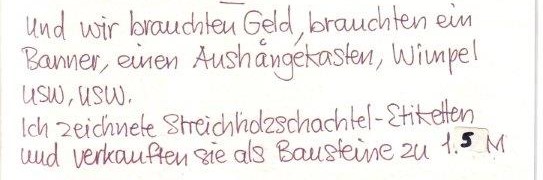 und wir brauchten Geld, brauchten ein
Banner, einen Aushängekasten, Wimpel
usw, usw.
Ich zeichnete Streichholzschachtel-Etiketten
und verkauften sie als Bausteine zu 1.5 M